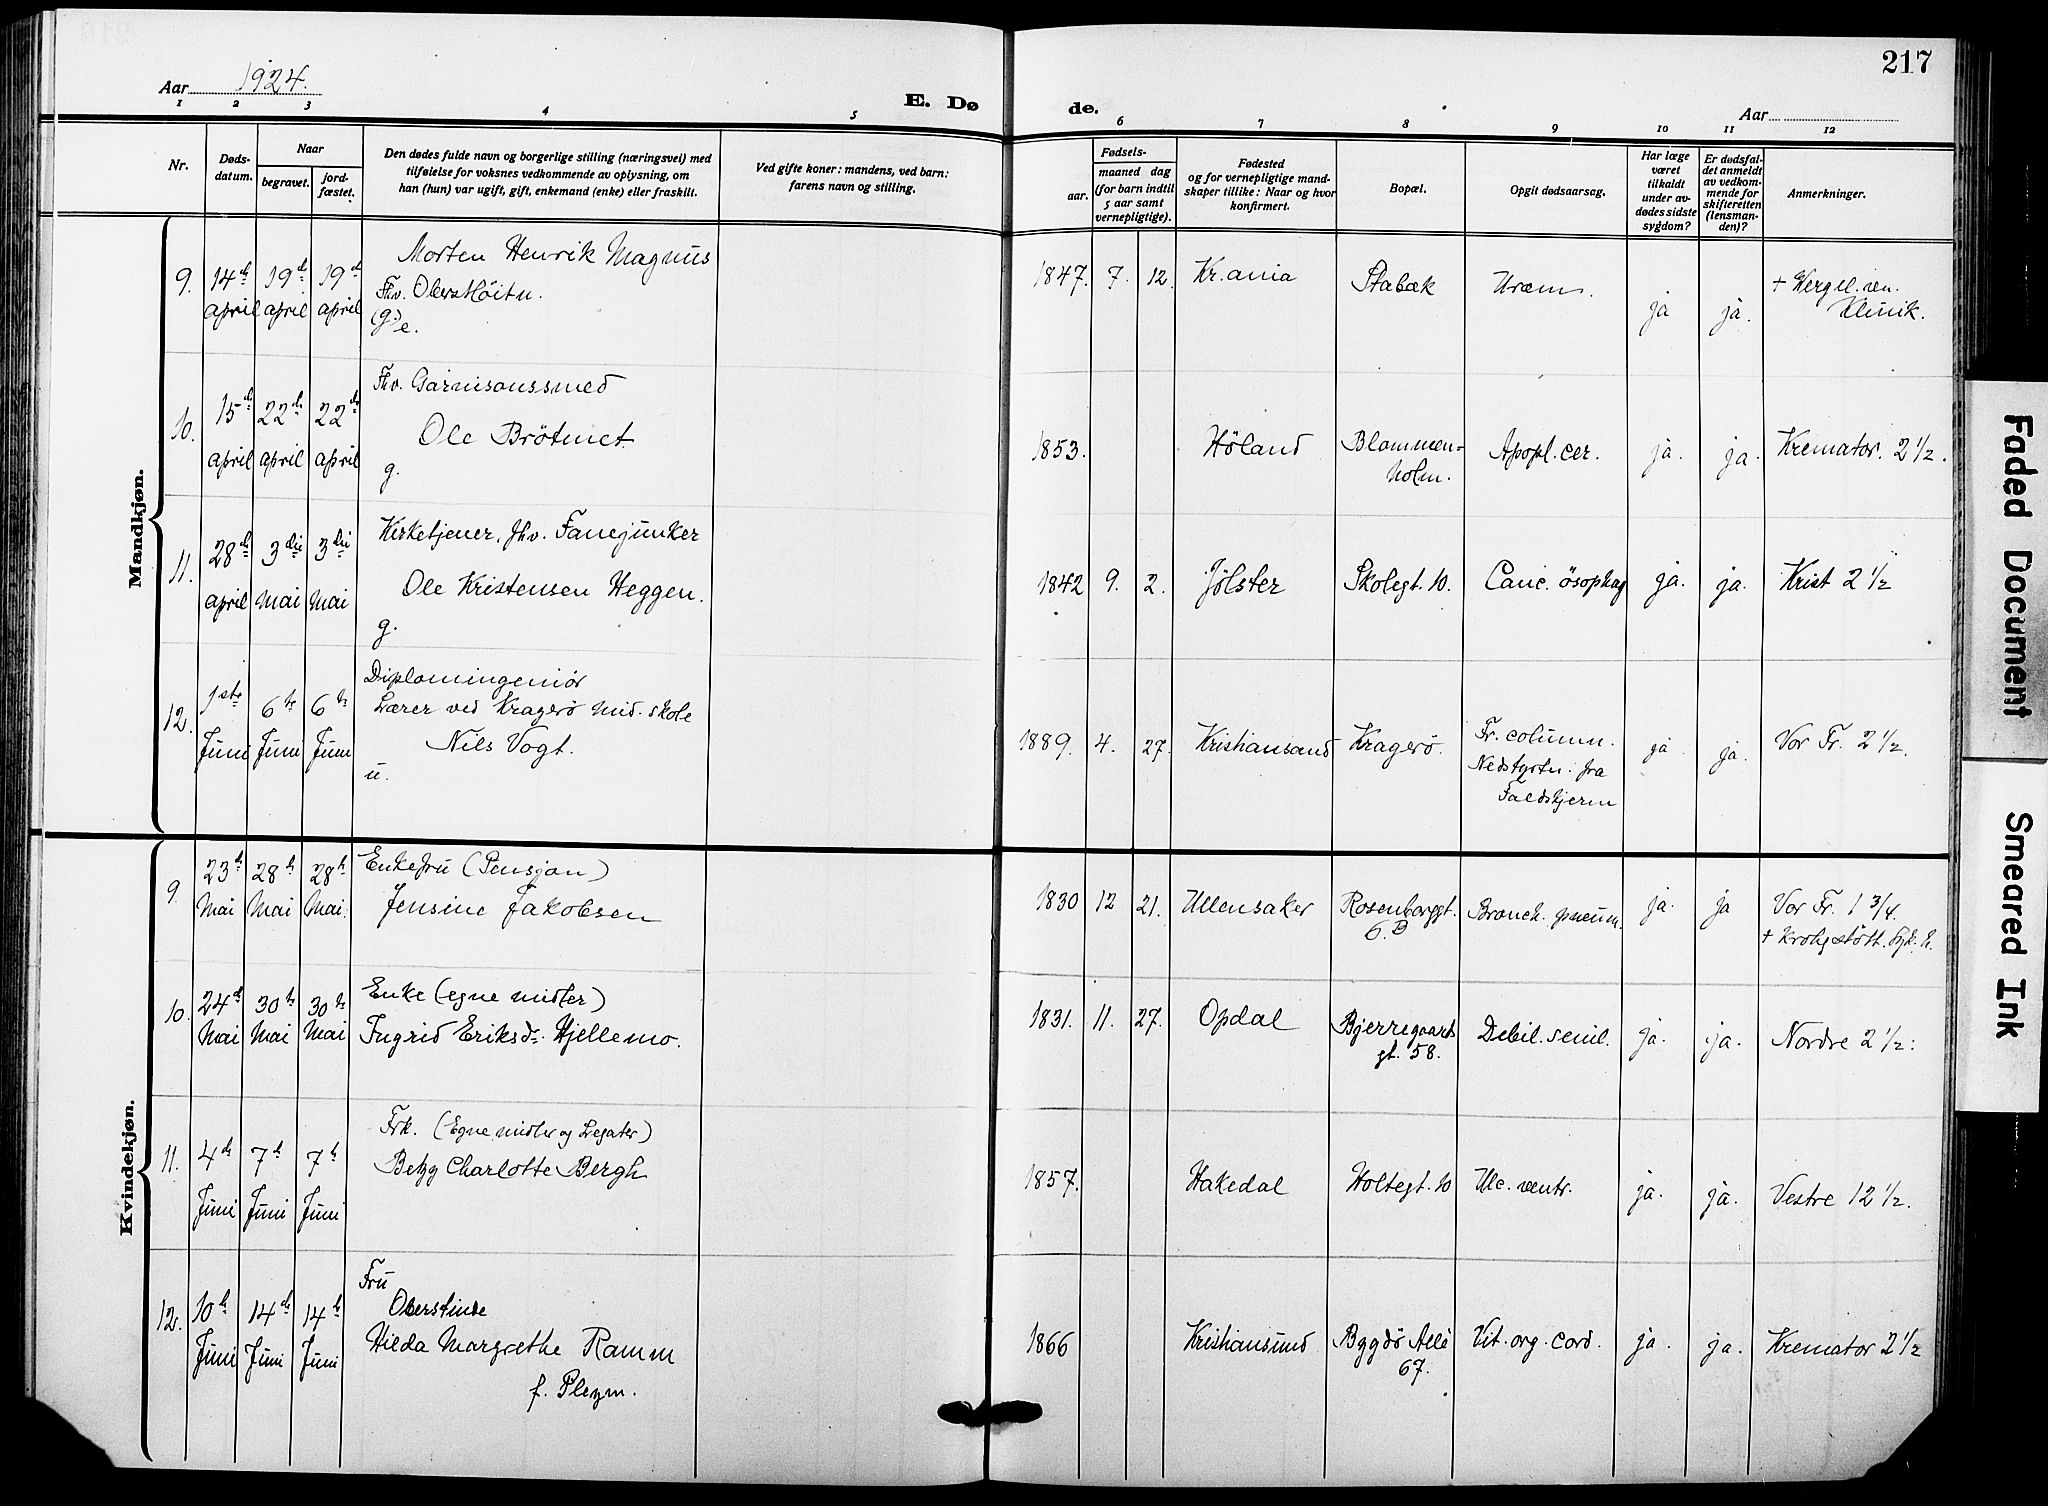 217
Aar 1924.
E. Dø de.
Aar
1 2 3 4 5 6 7 8 9 10 11 12
Nr.
Døds-
datum.
Naar
begravet.
jord-
fæstet.
Den dødes fulde navn og borgerlige stilling (næringsvei) med
tilføielse for voksnes vedkommende av oplysning, om
han (hun) var ugift, gift, enkemand (enke) eller fraskilt.
Ved gifte koner: mandens, ved barn:
farens navn og stilling.
Fødsels-
aar.
maaned dag
(for barn indtil
5 aar samt
vernepligtige).
Fødested
og for vernepligtige mand-
skaper tillike: Naar og hvor
konfirmert.
Bopæl.
Opgit dødsaarsag.
Har læge
været
tilkaldt
under av-
dødes sidste
sygdom?
Er dødsfal-
det anmeldt
av vedkom-
mende for
skifteretten
(lensman-
den)?
Anmerkninger.
Mandkjøn.
9. 14de april 19de april 19de april
Morten Henrik Magnus
Fhv. Oberstløitn.
(g.) e.
1847. 7. 12. Kr.ania Stabæk Uræmi. ja ja.
+ Hergel. ven.
Klinik.
10. 15de april 22de april 22de april
Fhv. Garnisonssmed
Ole Brötmet
g.
1853. Höland Blommen-
holm.
Apopl. cer. ja. ja. Kremator. 2 1/2.
11. 28de april 3die Mai 3die Mai
Kirketjener, fhv. Fanejunker
Ole Kristensen Heggen.
g.
1842 9. 2. Jölster Skolegt. 10. Canc. ösophag ja. ja. Krist 2 1/2
12. 1ste Juni 6te Juni 6te Juni
Diplomingeniør
Lærer ved Kragerö mid. skole
Nils Vogt.
u.
1889. 4. 27. Kristiansand Kragerö.
Fr. column.
Nedstyrtn. fra
Faldskjerm
ja ja. Vor Fr. 2 1/2.
Kvindekjøn.
9. 23de Mai 28de Mai 28de Mai.
Enkefru (Pensjon)
Jensine Jakobsen
1830 12 21. Ullensaker Rosenborggt.
6. B
Bronch. pneum. ja. ja Vor Fr. 1 3/4.
+ Krohgstött. Syk. h.
10. 24de Mai 30te Mai 30te Mai
Enke (egne midler)
Ingrid Eriksdr. Hjellemo.
1831. 11. 27. Opdal Bjerregaards
gt. 58.
Debil. senil. ja. ja. Nordre 2 1/2.
11. 4de Juni 7de Juni 7de Juni
Frk. (Egne midler og Legater)
Betzy Charlotte Bergh
1857. Hakedal Holtegt. 10 Ulc. ventr. ja. ja. Vestre 12 1/2.
12. 10de Juni 14de Juni 14de Juni
Fru
Oberstinde
Hilda Margrethe Ramm
f. Pleym.
1866 Kristiansund Bygdö Allé
67.
Vit. org. cord. ja. ja. Kremator 2 1/2
Faded Document
Smeared Ink